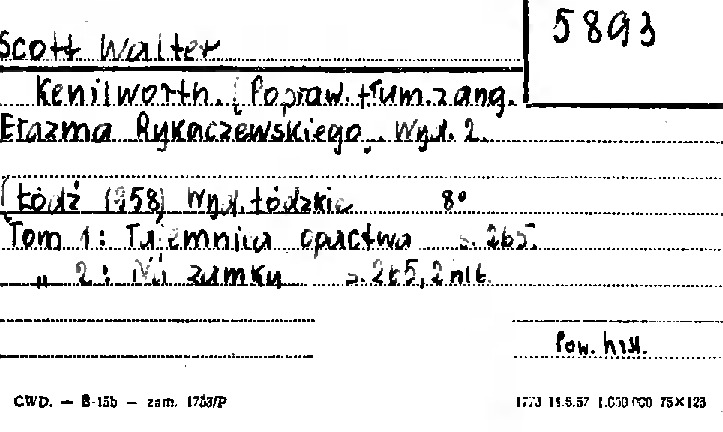 5893
Scott Walter
Kenilworth. [Popraw. tłum. z ang.
Erazma Rykaczewskiego. Wyd. 2.
[Łódź 1958] Wyd. Łódzkie 8°
Tom 1: Tajemnica opactwa s. 265.
" 2: Na zamku s. 265, 2 nlb.
Pow. hist.
CWD. — B-15b — zam. 1733/P
75×125